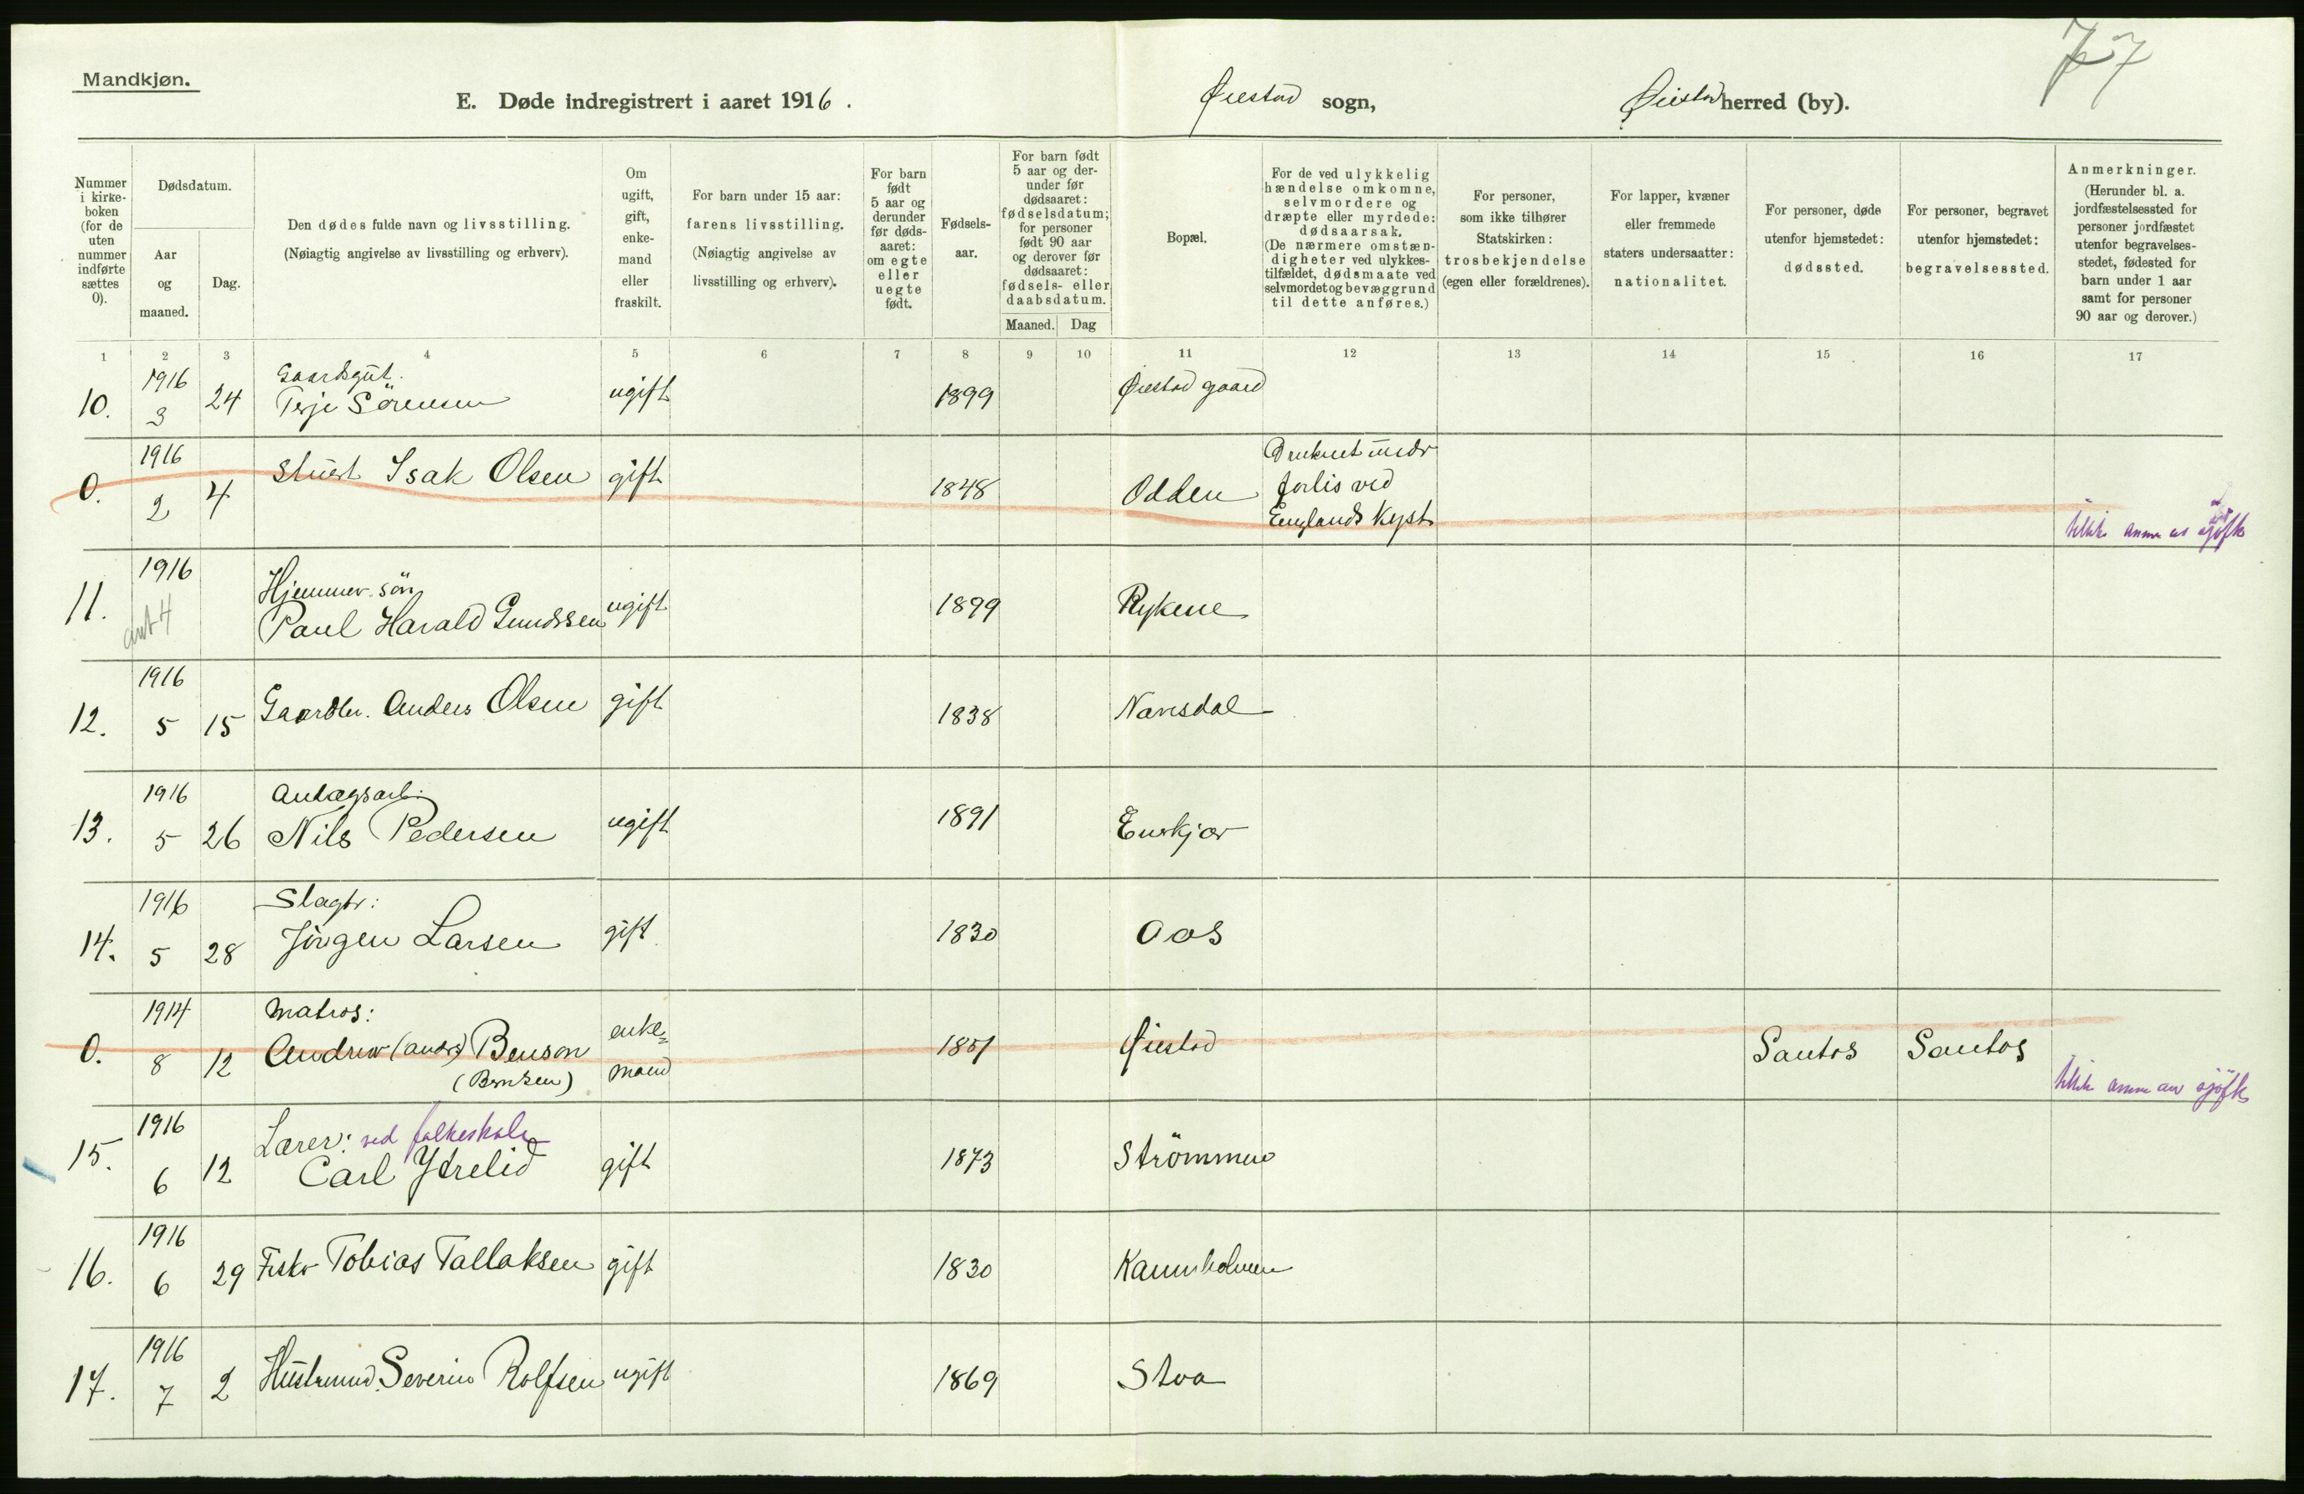 77
Mandkjøn.
E. Døde indregistrert i aaret 1916.
Øiestad sogn,
Øiestad herred (by).
Nummer i kirkeboken (for de uten nummer indførte sættes 0).
Dødsdatum.
Aar og maaned.
Dag.
Den dødes fulde navn og livsstilling.
(Nøiagtig angivelse av livsstilling og erhverv).
Om ugift, gift, enkemand eller fraskilt.
For barn under 15 aar:
farens livsstilling.
(Nøiagtig angivelse av livsstilling og erhverv).
For barn født 5 aar og derunder før dødsaaret: om egte eller uegte født.
Fødselsaar.
For barn født 5 aar og derunder før dødsaaret: fødselsdatum; for personer født 90 aar og derover før dødsaaret: fødsels- eller daabsdatum.
Maaned.
Dag
Bopæl.
For de ved ulykkelig hændelse omkomne, selvmordere og dræpte eller myrdede: dødsaarsak.
(De nærmere omstændigheter ved ulykkestilfældet, dødsmaate ved selvmordet og bevæggrund til dette anføres.)
For personer, som ikke tilhører Statskirken: trosbekjendelse (egen eller forældrenes).
For lapper, kvæner eller fremmede staters undersaatter: nationalitet.
For personer, døde utenfor hjemstedet: dødssted.
For personer, begravet utenfor hjemstedet: begravelsessted.
Anmerkninger.
(Herunder bl. a. jordfæstelsessted for personer jordfæstet utenfor begravelsesstedet, fødested for barn under 1 aar samt for personer 90 aar og derover.)
1 2 3 4 5 6 7 8 9 10 11 12 13 14 15 16 17
10. 1916 3 24 Gaardsgut. Terje Sörensen ugift 1899 Øiestad gaard
0. 1916 2 4 Stuert Isak Olsen gift 1848 Odden Druknet under forlis ved Englands Kyst
11. 1916 ant 4 Hjemmev. sön Paul Harald Gundssen ugift 1899 Rykene
12. 1916 5 15 Gaardbr. Anders Olsen gift 1838 Narresdal
13. 1916 5 26 Anlægsarb: Nils Pedersen ugift 1891
14. 1916 5 28 Slagtr: Jörgen Larsen gift 1830 Aas
0. 1914 8 12 Matros: Andrew (Andrs) Benson (Berntsen) enkemand 1851 Øiestad Santos Santos
15. 1916 6 12 Lærer: ved folkeskole Carl Ytrelid gift 1873 Strömmen
16. 1916 6 29 Fisker Tobias Tallaksen gift 1830
17. 1916 7 2 Severin Rolfsen ugift 1869 Stoa